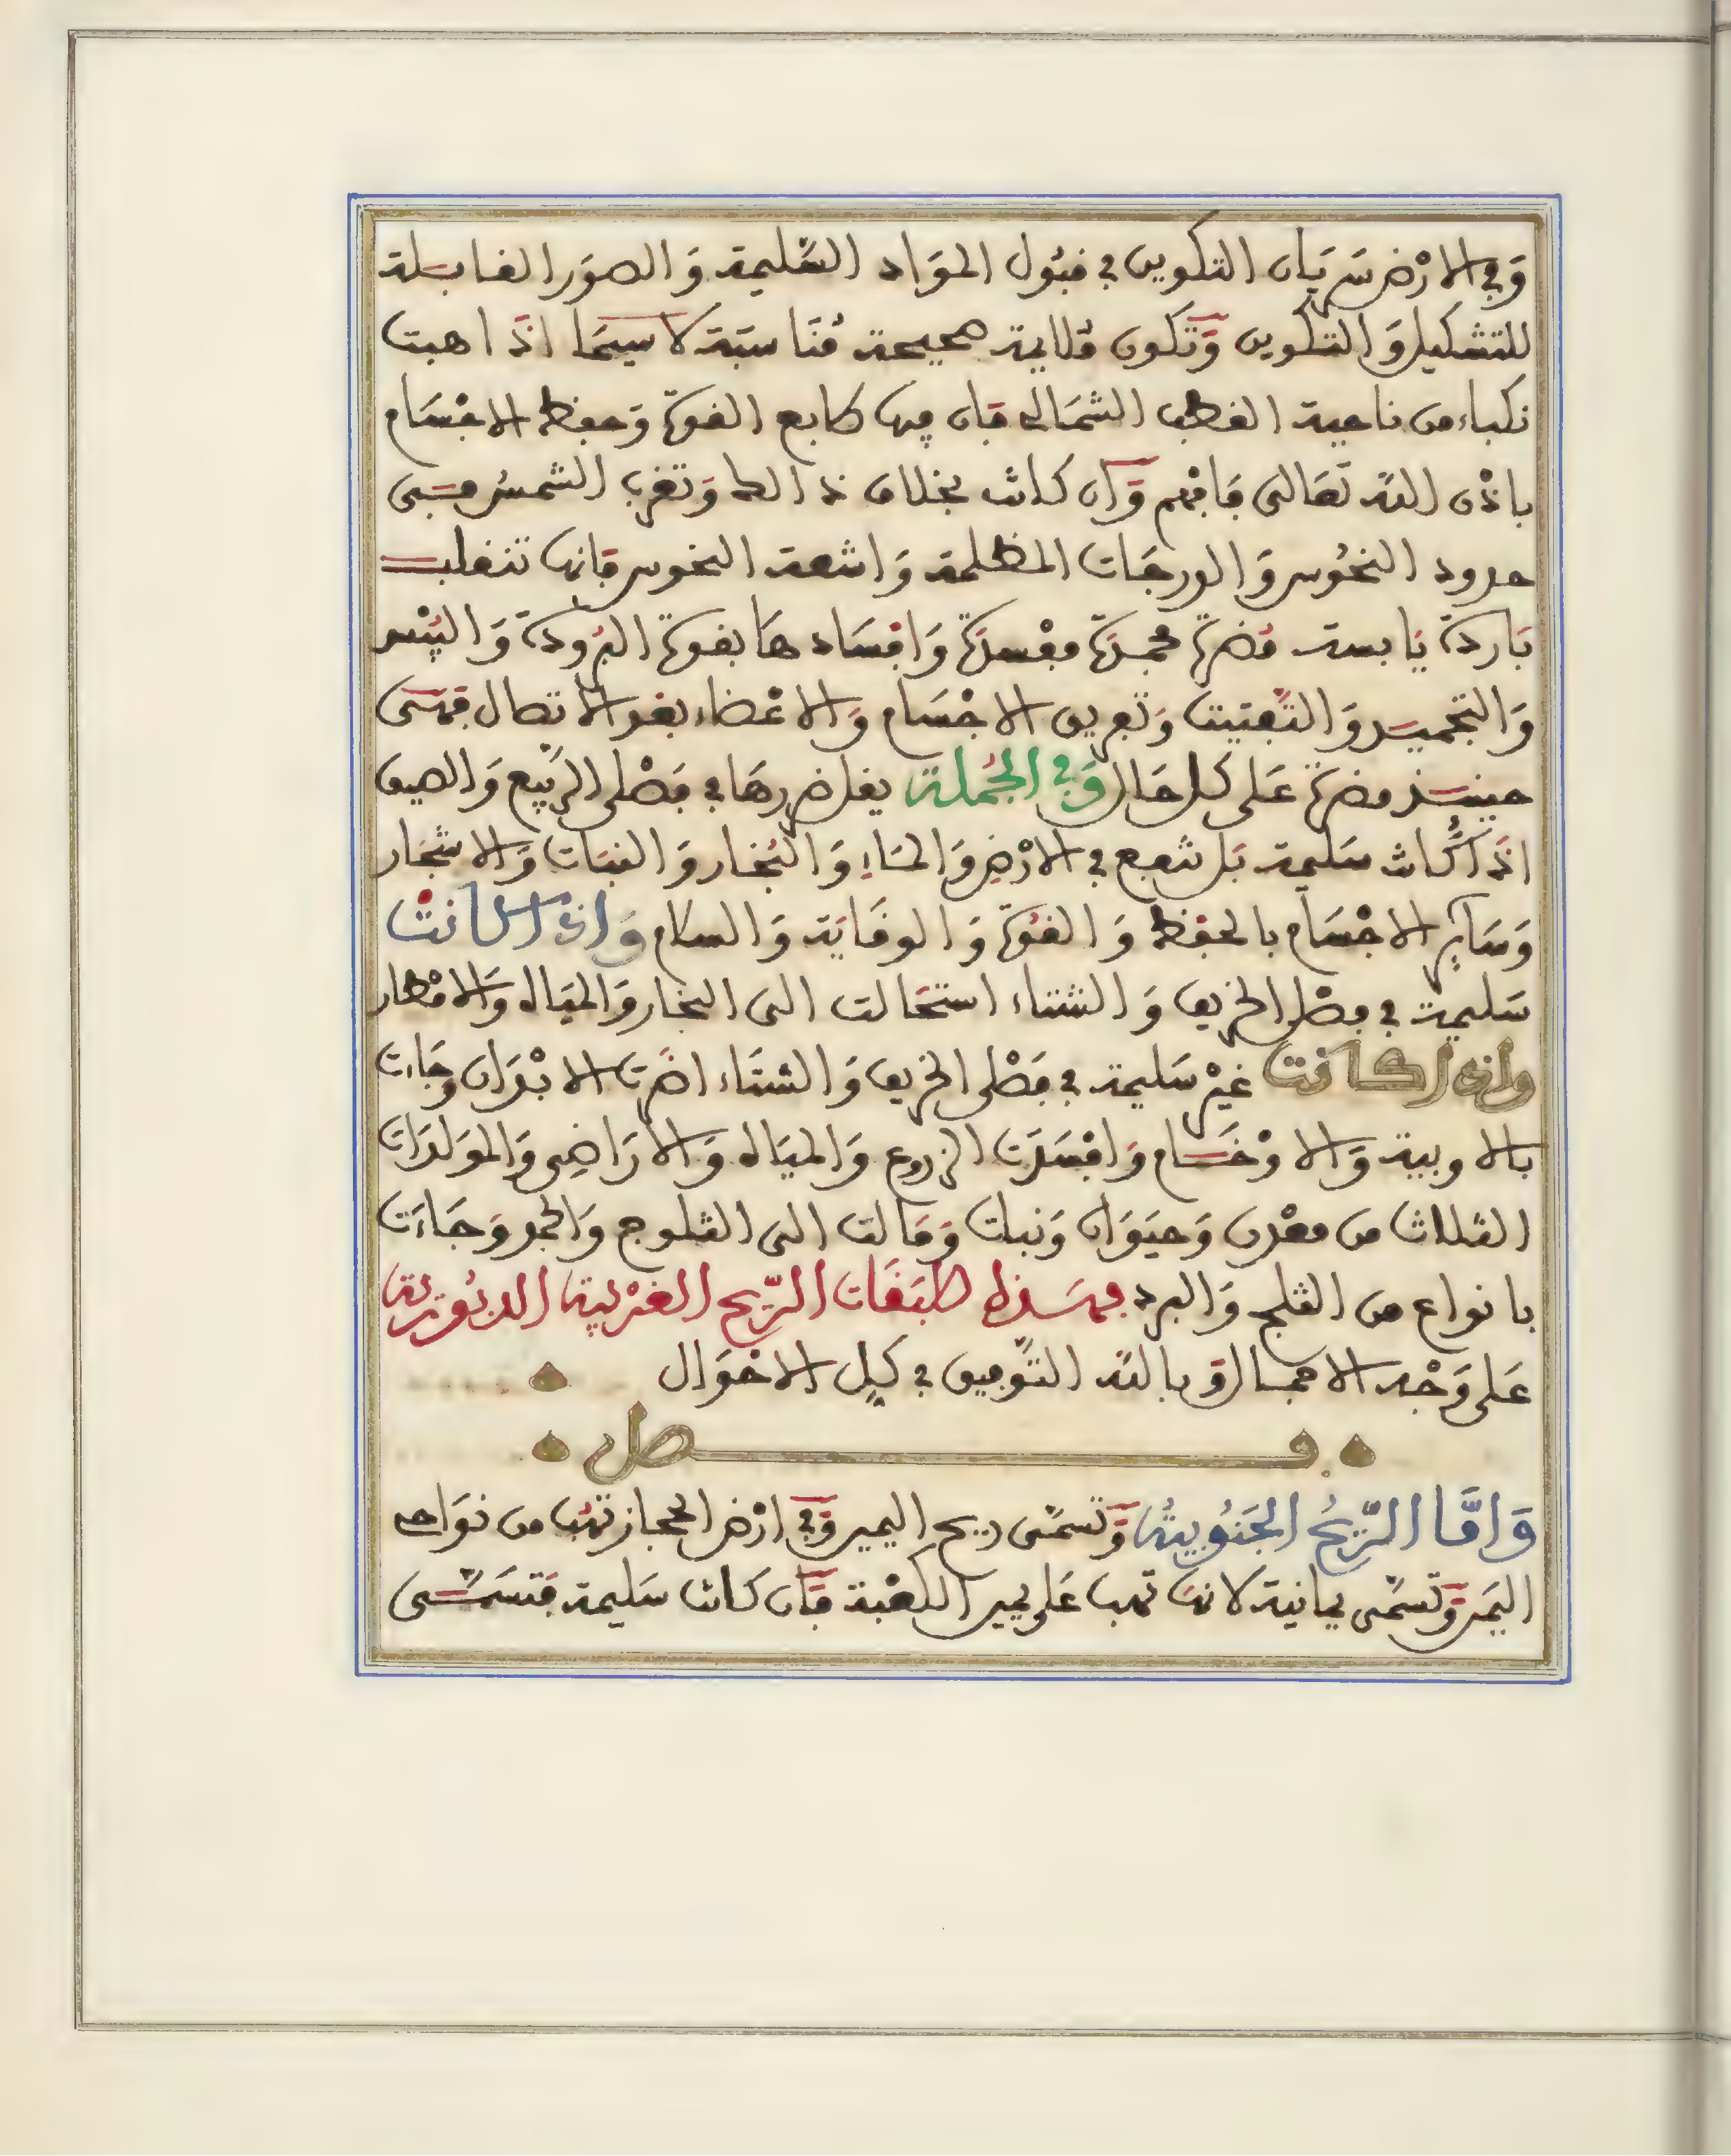 وَفِي الارْض سَرَيَان التكوين في قبُول الموَاد السَّليمة وَالصوَر القابلة
للتشكيل وَالتكوين وَتكون مُلايمة صحيحة مُنَاسَبَة لاسيمَا اذَا هبت
نكباء من ناحية القطب الشمَالي فان فيها طابع القوة وَحفظ الاجْسَام
باذن الله تعَالى فافهم وَان كانت بخلاف ذالك وَتغرب الشمس في
حدود النحُوس وَالدرجَات المظلمة وَاشعة النحوس فانها تنقلب
بَاردة يَابسة مُضرة مجمدة مفْسدة وَافسَادهَا بقوة البرُودة وَاليُبْس
وَالتجميد وَالتَّفتيت وَتفريق الاجْسَام وَالاعْضاء بعد الاتصال فهى
حينئذ مضرة عَلى كل حَال وَفِي الجُملة يقل ضررهَا في فصْلى الرَّبيع وَالصيف
اذَا كانت سَليمة بَل تنفع في الارْضِ وَالمَاءِ وَالبُخار وَالنبَات وَالاشجَار
وَسَائِر الاجْسَام بالحفْظ وَالقُوة وَالوقَايَة وَالسلام وَاذا كانتْ
سَليمة في فصْل الخريف وَالشتاء استحَالت الى البخار وَالميَاه وَالامْطار
واذا كانت غيْر سَليمة في فصْلى الخريف وَالشتَاء اضرَّت الابْدَان وَجَاءت
بالاوبية وَالاوْخَام وَافْسَدَت الزروع وَالميَاه وَالارَاضِى وَالموَلدَات
الثلاث من معْدن وَحيَوَان وَنبات وَمَالت الى الثلوج وَالجمد وَجَاءَت
بانواع من الثلج وَالبرد فهَذه طبَقَات الرّيح الغرْبية الدبُورية
عَلى وَجْه الاجمال وَبالله التَّوفيق في كلِ الاحْوَال
فصل
وَامَّا الرِّيحُ الجَنُوبيةُ وَتسمَّى ريح اليمين وَفِي ارْض الحجاز تهُب من نوَاحى
اليَمن وَتسَمَّى يمانية لانهَا تهب عَلى يمين الكعْبة فَان كانت سَليمة فتسَمَّى